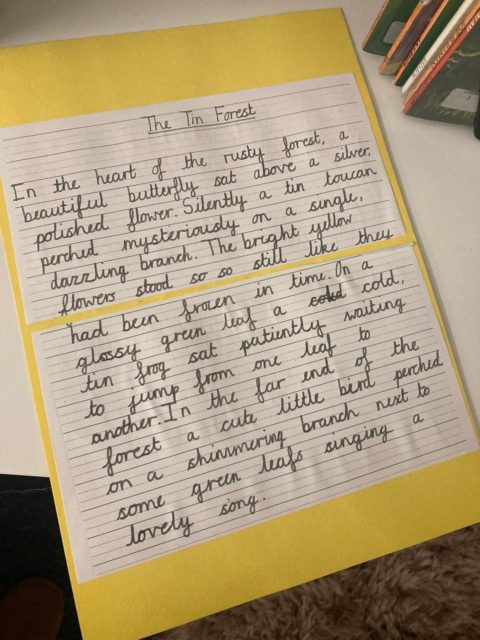 The Tin Forest
In the heart of the rusty forest, a
beautiful butterfly sat above a silver,
polished flower. Silently a tin toucan
perched mysteriously on a single,
dazzling branch. The bright yellow
flowers stood so so still like they
had been frozen in time. In a
glossy green leaf a cold,
tin frog sat patiently waiting
to jump from one leaf to
another. In the far end of the
forest a cute little bird perched
on a shimmering branch next to
some green leafs singing a
lovely song.